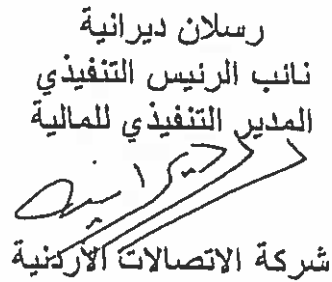 رسلان ديرانية
نائب الرئيس التنفيذي
المدير التنفيذي للمالية
شركة الاتصالات الأردنية